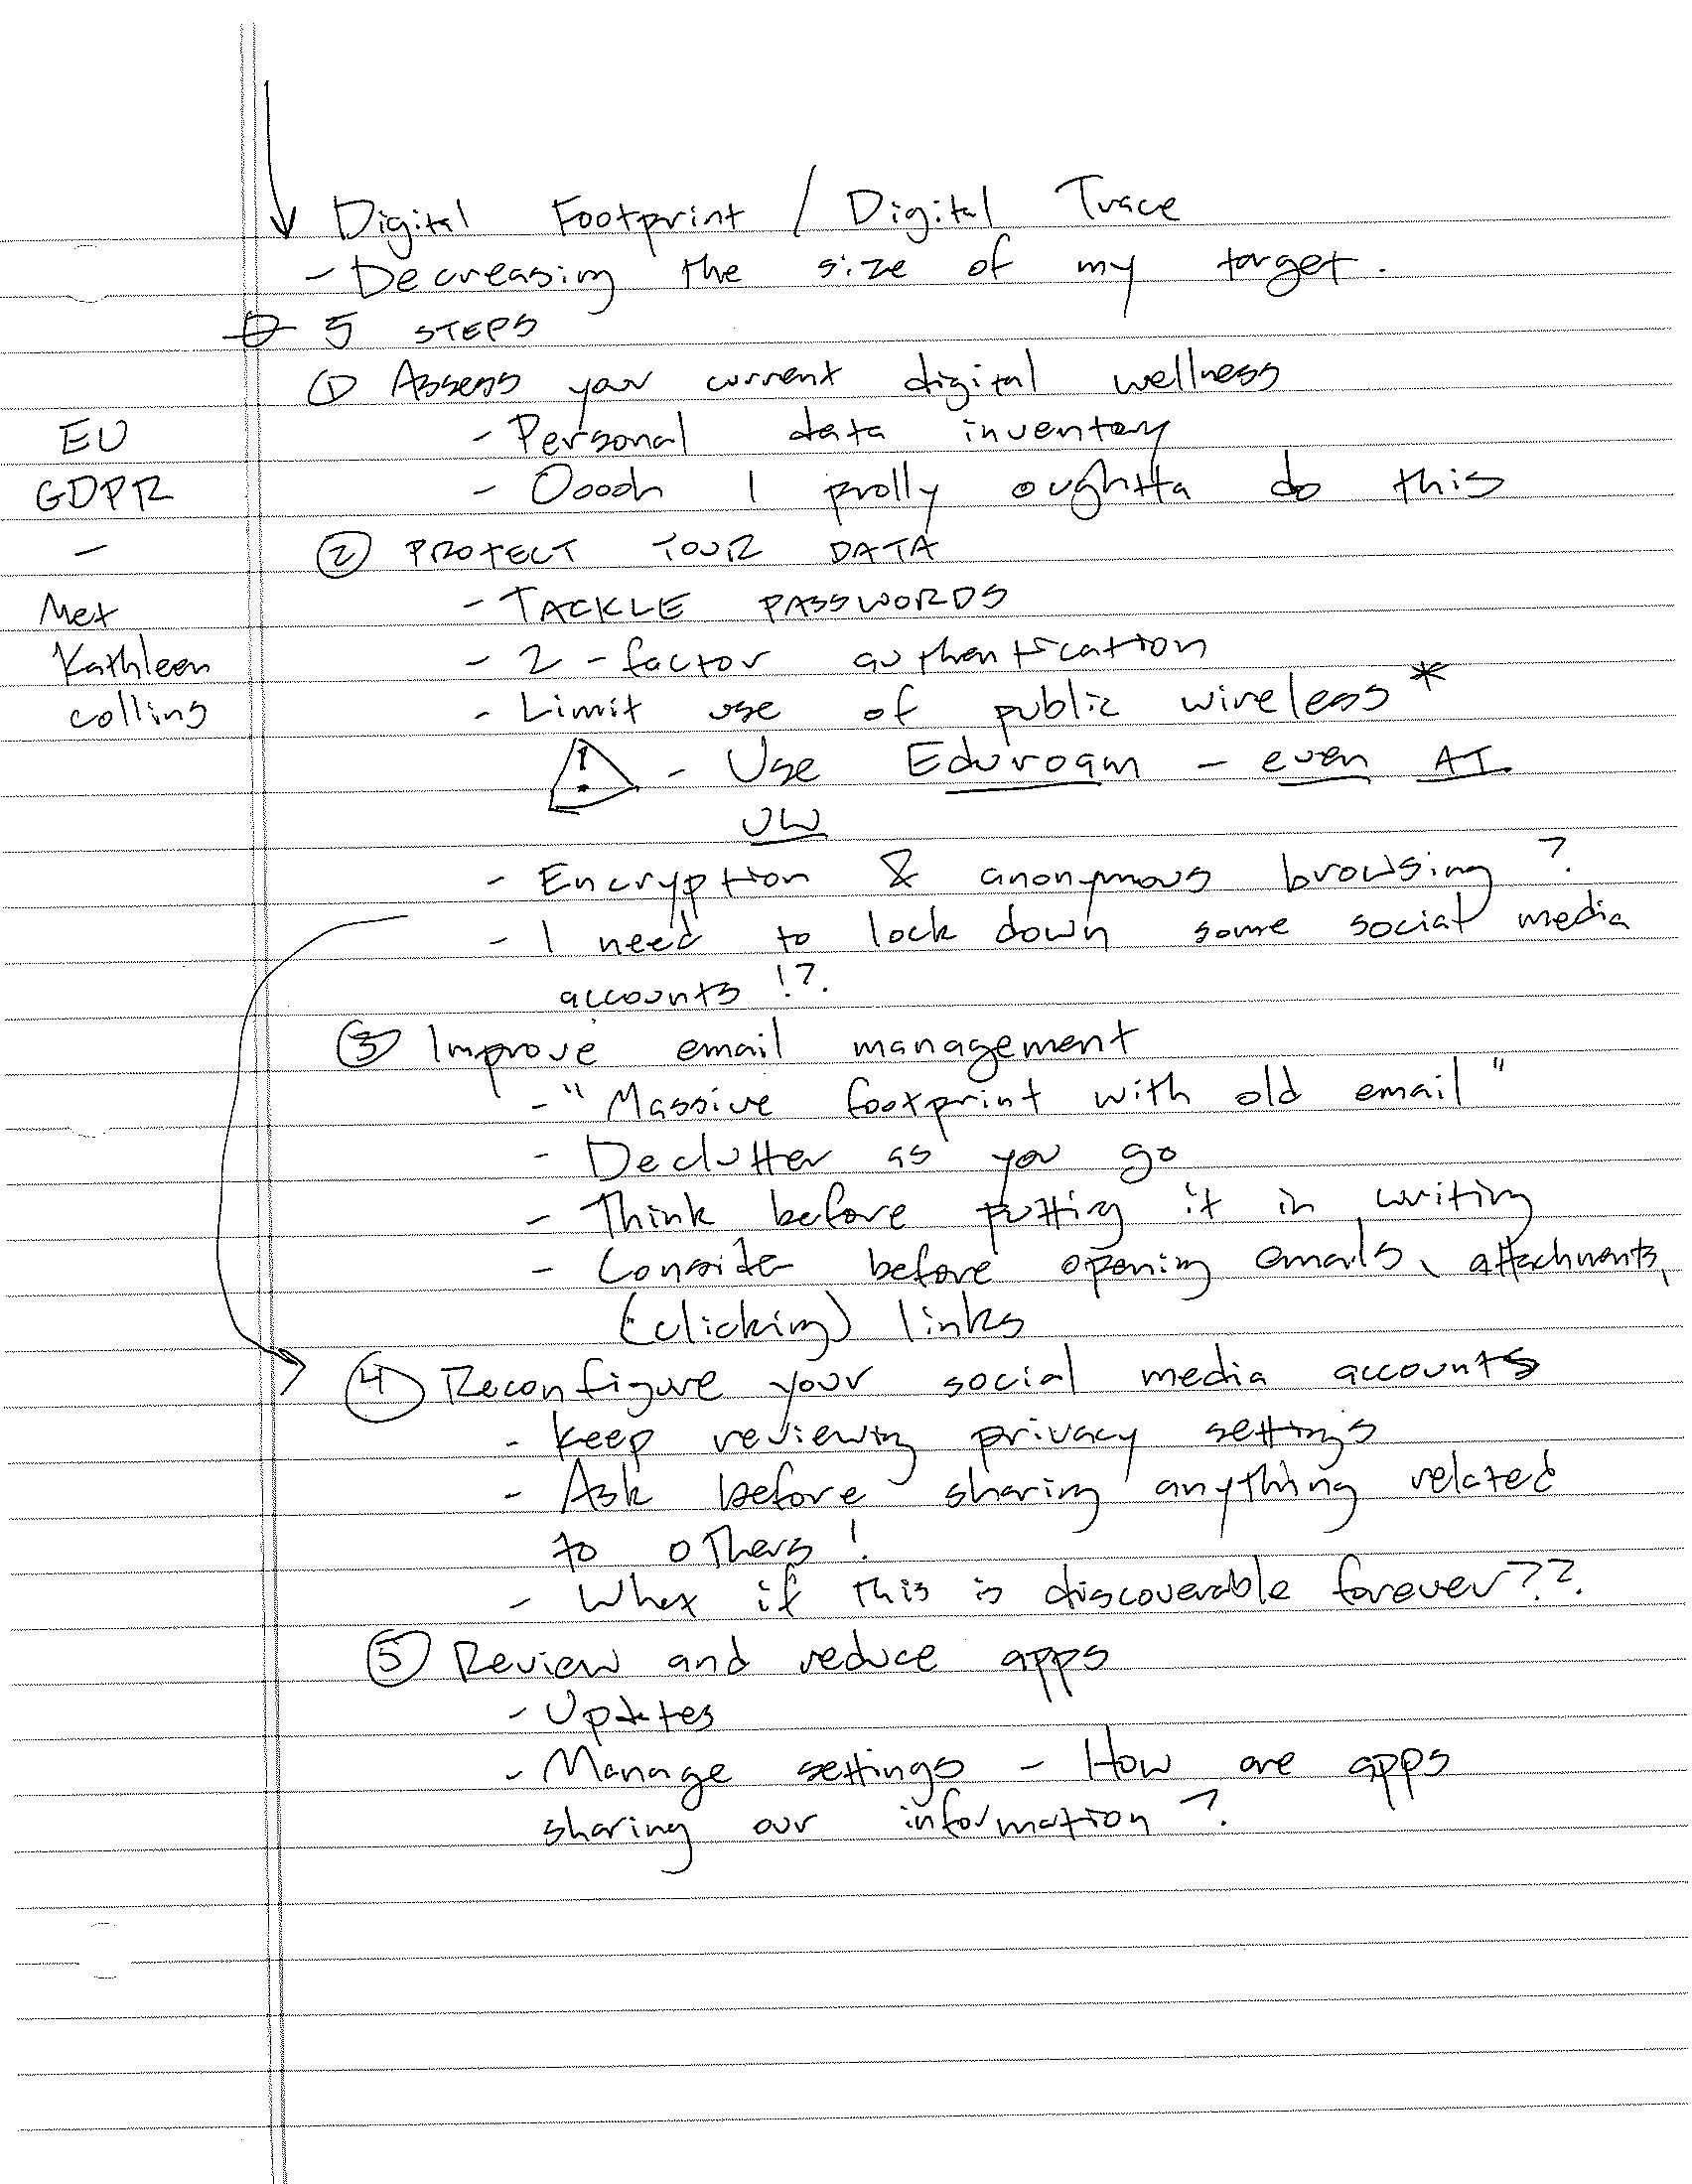 Digital Footprint / Digital Trace
- Decreasing the size of my target.
5 STEPS
① Assess your current digital wellness
- Personal data inventory
- Ooooh I prolly oughtta do this
EU
GDPR
-
Met
Kathleen
collins
② PROTECT YOUR DATA
- TACKLE PASSWORDS
- 2-factor authentication
- Limit use of public wireless *
! - Use Eduroam - even AT
UW
- Encryption & anonymous browsing?
- I need to lock down some social media
accounts!?.
③ Improve email management
- "Massive footprint with old email"
- Declutter as you go
- Think before putting it in writing
- Consider before opening emails, attachments,
(clicking) links
④ Reconfigure your social media accounts
- Keep reviewing privacy settings
- Ask before sharing anything related
to others!
- What if this is discoverable forever??.
⑤ Review and reduce apps
- Updates
- Manage settings - How are apps
sharing our information?